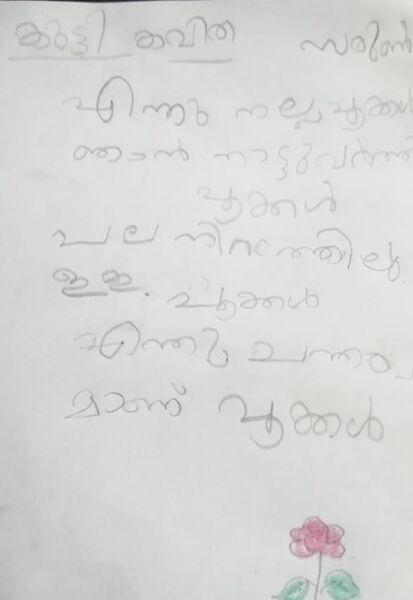 കുട്ടി കവിത സരുൺ
എന്തു നല്ല പൂക്കൾ
ഞാൻ നാട്ടുവർത്ത
പൂക്കൾ
പല നിറത്തിലു
ഇഇ. പൂക്കൾ
എന്തു ചന്തമാ
മാണ് പൂക്കൾ